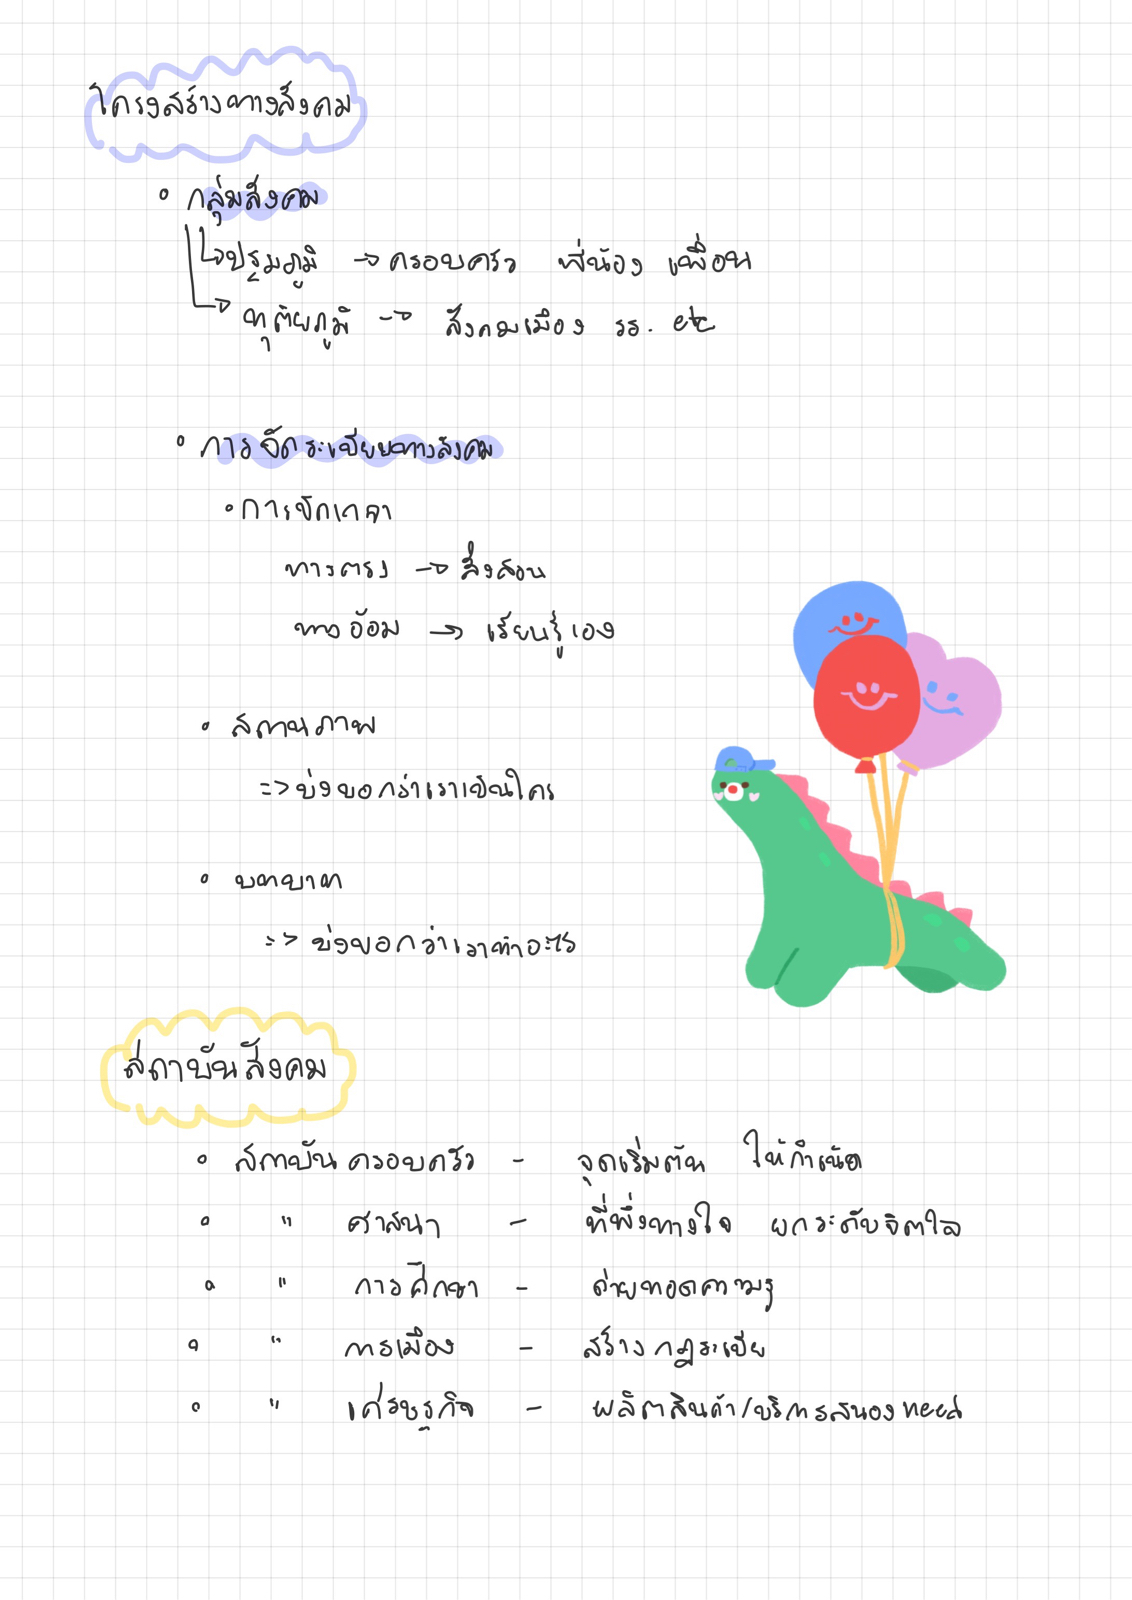 โครงสร้างทางสังคม
• กลุ่มสังคม
↳ ปฐมภูมิ → ครอบครัว พี่น้อง เพื่อน
↳ ทุติยภูมิ → สังคมเมือง รร. etc
• การจัดระเบียบทางสังคม
• การขัดเกลา
ทางตรง → สั่งสอน
ทางอ้อม → เรียนรู้เอง
• สถานภาพ
=> บ่งบอกว่าเราเป็นใคร
• บทบาท
=> บ่งบอกว่าเราทำอะไร
สถาบันสังคม
• สถาบันครอบครัว - จุดเริ่มต้น ให้กำเนิด
• " ศาสนา - ที่พึ่งทางใจ ยกระดับจิตใจ
• " การศึกษา - ถ่ายทอดความรู้
• " การเมือง - สร้างกฎระเบีย
• " เศรษฐกิจ - ผลิตสินค้า/บริการสนอง need